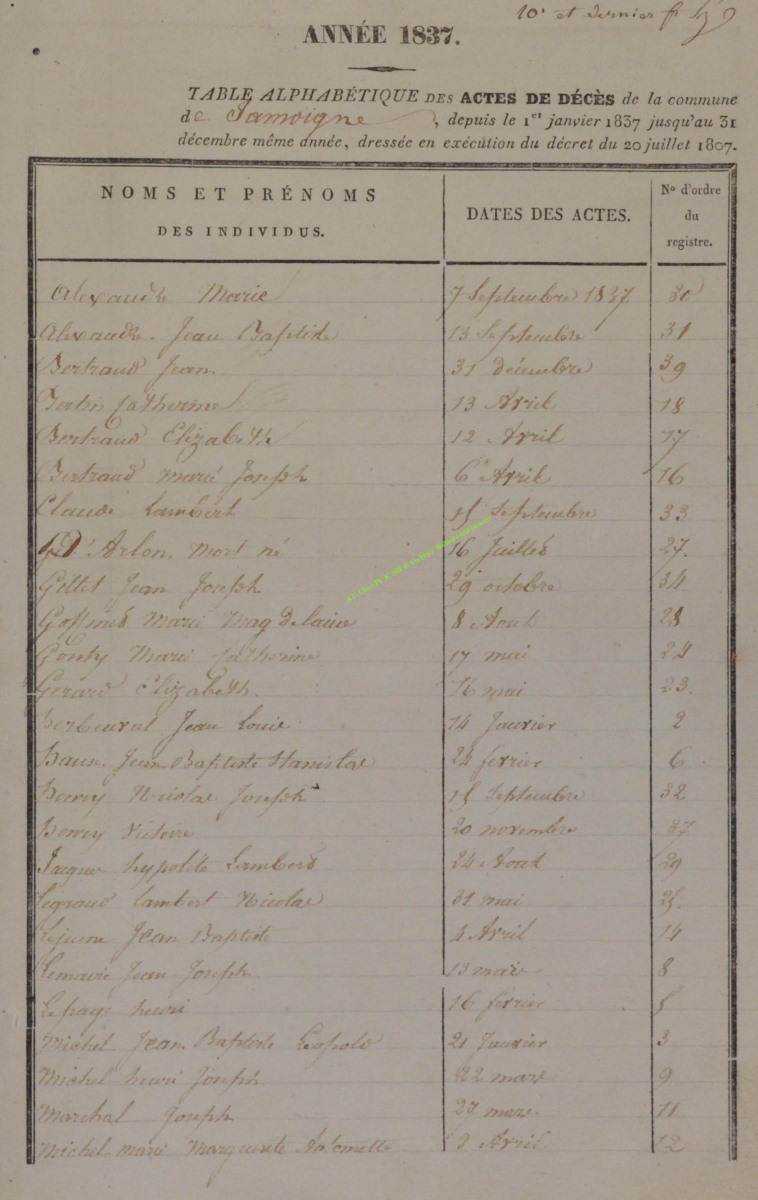 10e et dernier f
ANNÉE 1837.
TABLE ALPHABÉTIQUE DES ACTES DE DÉCÈS de la commune
de Jamoigne, depuis le 1er janvier 1837 jusqu'au 31
décembre même année, dressée en exécution du décret du 20 juillet 1807.
NOMS ET PRÉNOMS DES INDIVIDUS. DATES DES ACTES. No d'ordre du registre.
Alexandre Marie 7 Septembre 1837 30
Alexandre Jean Baptiste 13 Septembre 31
Bertrand Jean 31 décembre 39
Catherine 13 Avril 18
Bertrand Elizabeth 12 Avril 17
Bertrand Marie Joseph 6 Avril 16
Claude Lambert 15 Septembre 33
D'Arlon mort né 16 Juillet 27.
Gillet Jean Joseph 29 octobre 34
Marie Magdelaine 8 Aout 28
Gonty Marie Catherine 17 mai 24
Gerard Elizabeth. 16 mai 23.
Jean Louis 14 Janvier 2
Jean Baptiste Stanislas 24 fevrier 6
henry Nicolas Joseph 15 Septembre 32
henry Victoire 20 novembre 37
Jacques hypolite Lambert 24 Aout 29
Legrand Lambert Nicolas 31 mai 25.
Lejeune Jean Baptiste 4 Avril 14
Lemaire Jean Joseph 13 mars 8
Lepage henri 16 fevrier 5
Michel Jean Baptiste Leopold 21 Janvier 3
Michel henri Joseph 22 mars 9
Marchal Joseph 27 mars 11
Michel marie Marguerite Antoinette Avril 12